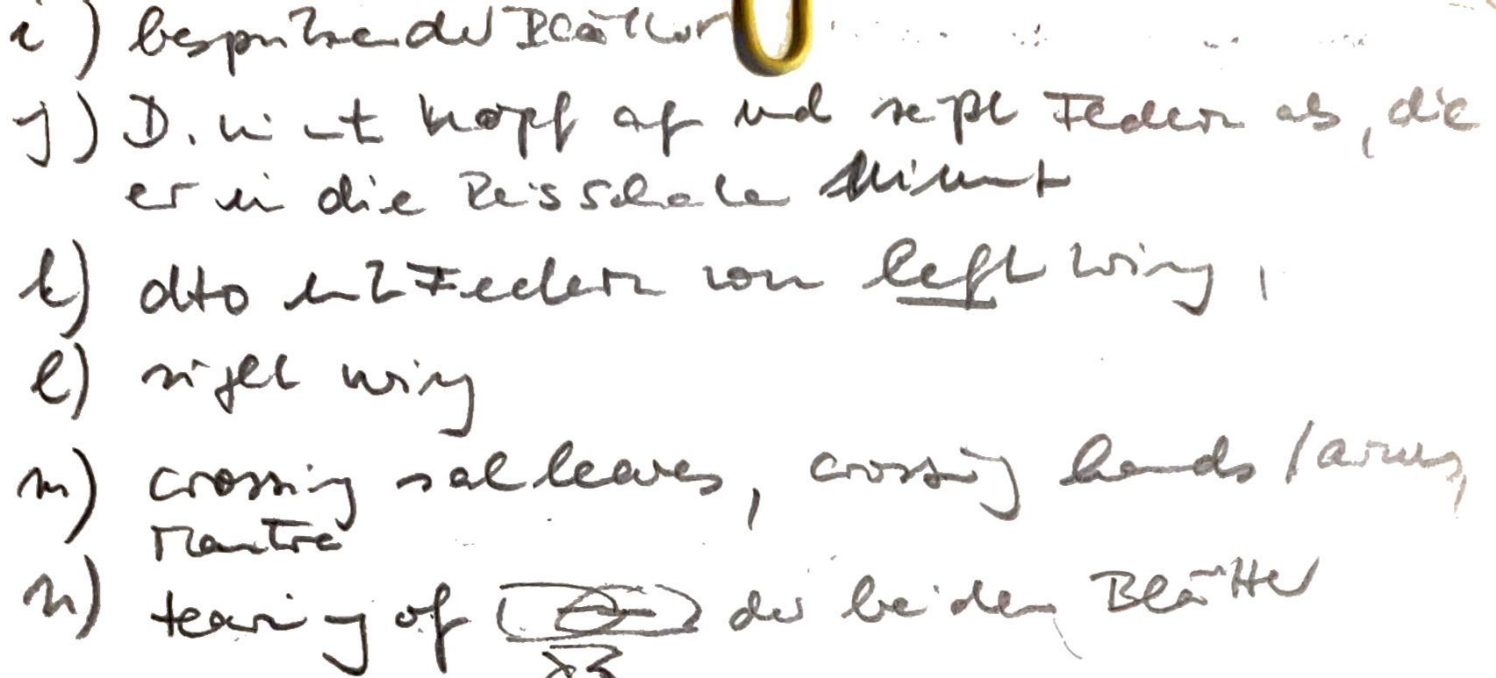 i) bespritzen der Blätter
j) D. nimmt Kopf auf und reißt Federn ab, die
er in die Reisschale nimmt
k) dto mit Federn von left wing,
l) right wing
m) crossing sal leaves, crossing hands / arms,
Mantra
n) tearing of der beiden Blätter